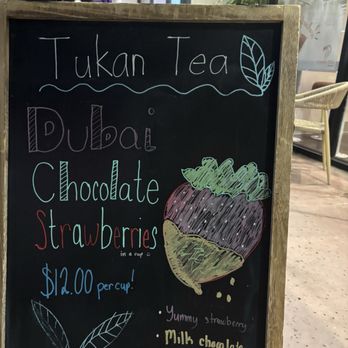 Tukan Tea
Dubai
Chocolate
Strawberries
in a cup :)
$12.00 per cup!
• Yummy strawberry
• Milk chocolate